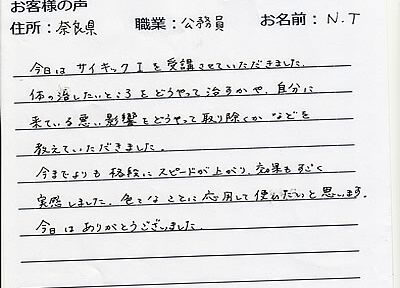 お客様の声
住所：奈良県 職業：公務員 お名前：N.T
今日は サイキックⅠを受講させていただきました。
体の治したいところをどうやって治すかや、自分に
来ている悪い影響をどうやって取り除くか などを
教えていただきました。
今までよりも格段にスピードが上がり、効果もすごく
実感しました。色々なことに応用して使いたいと思います。
今日は ありがとうございました。